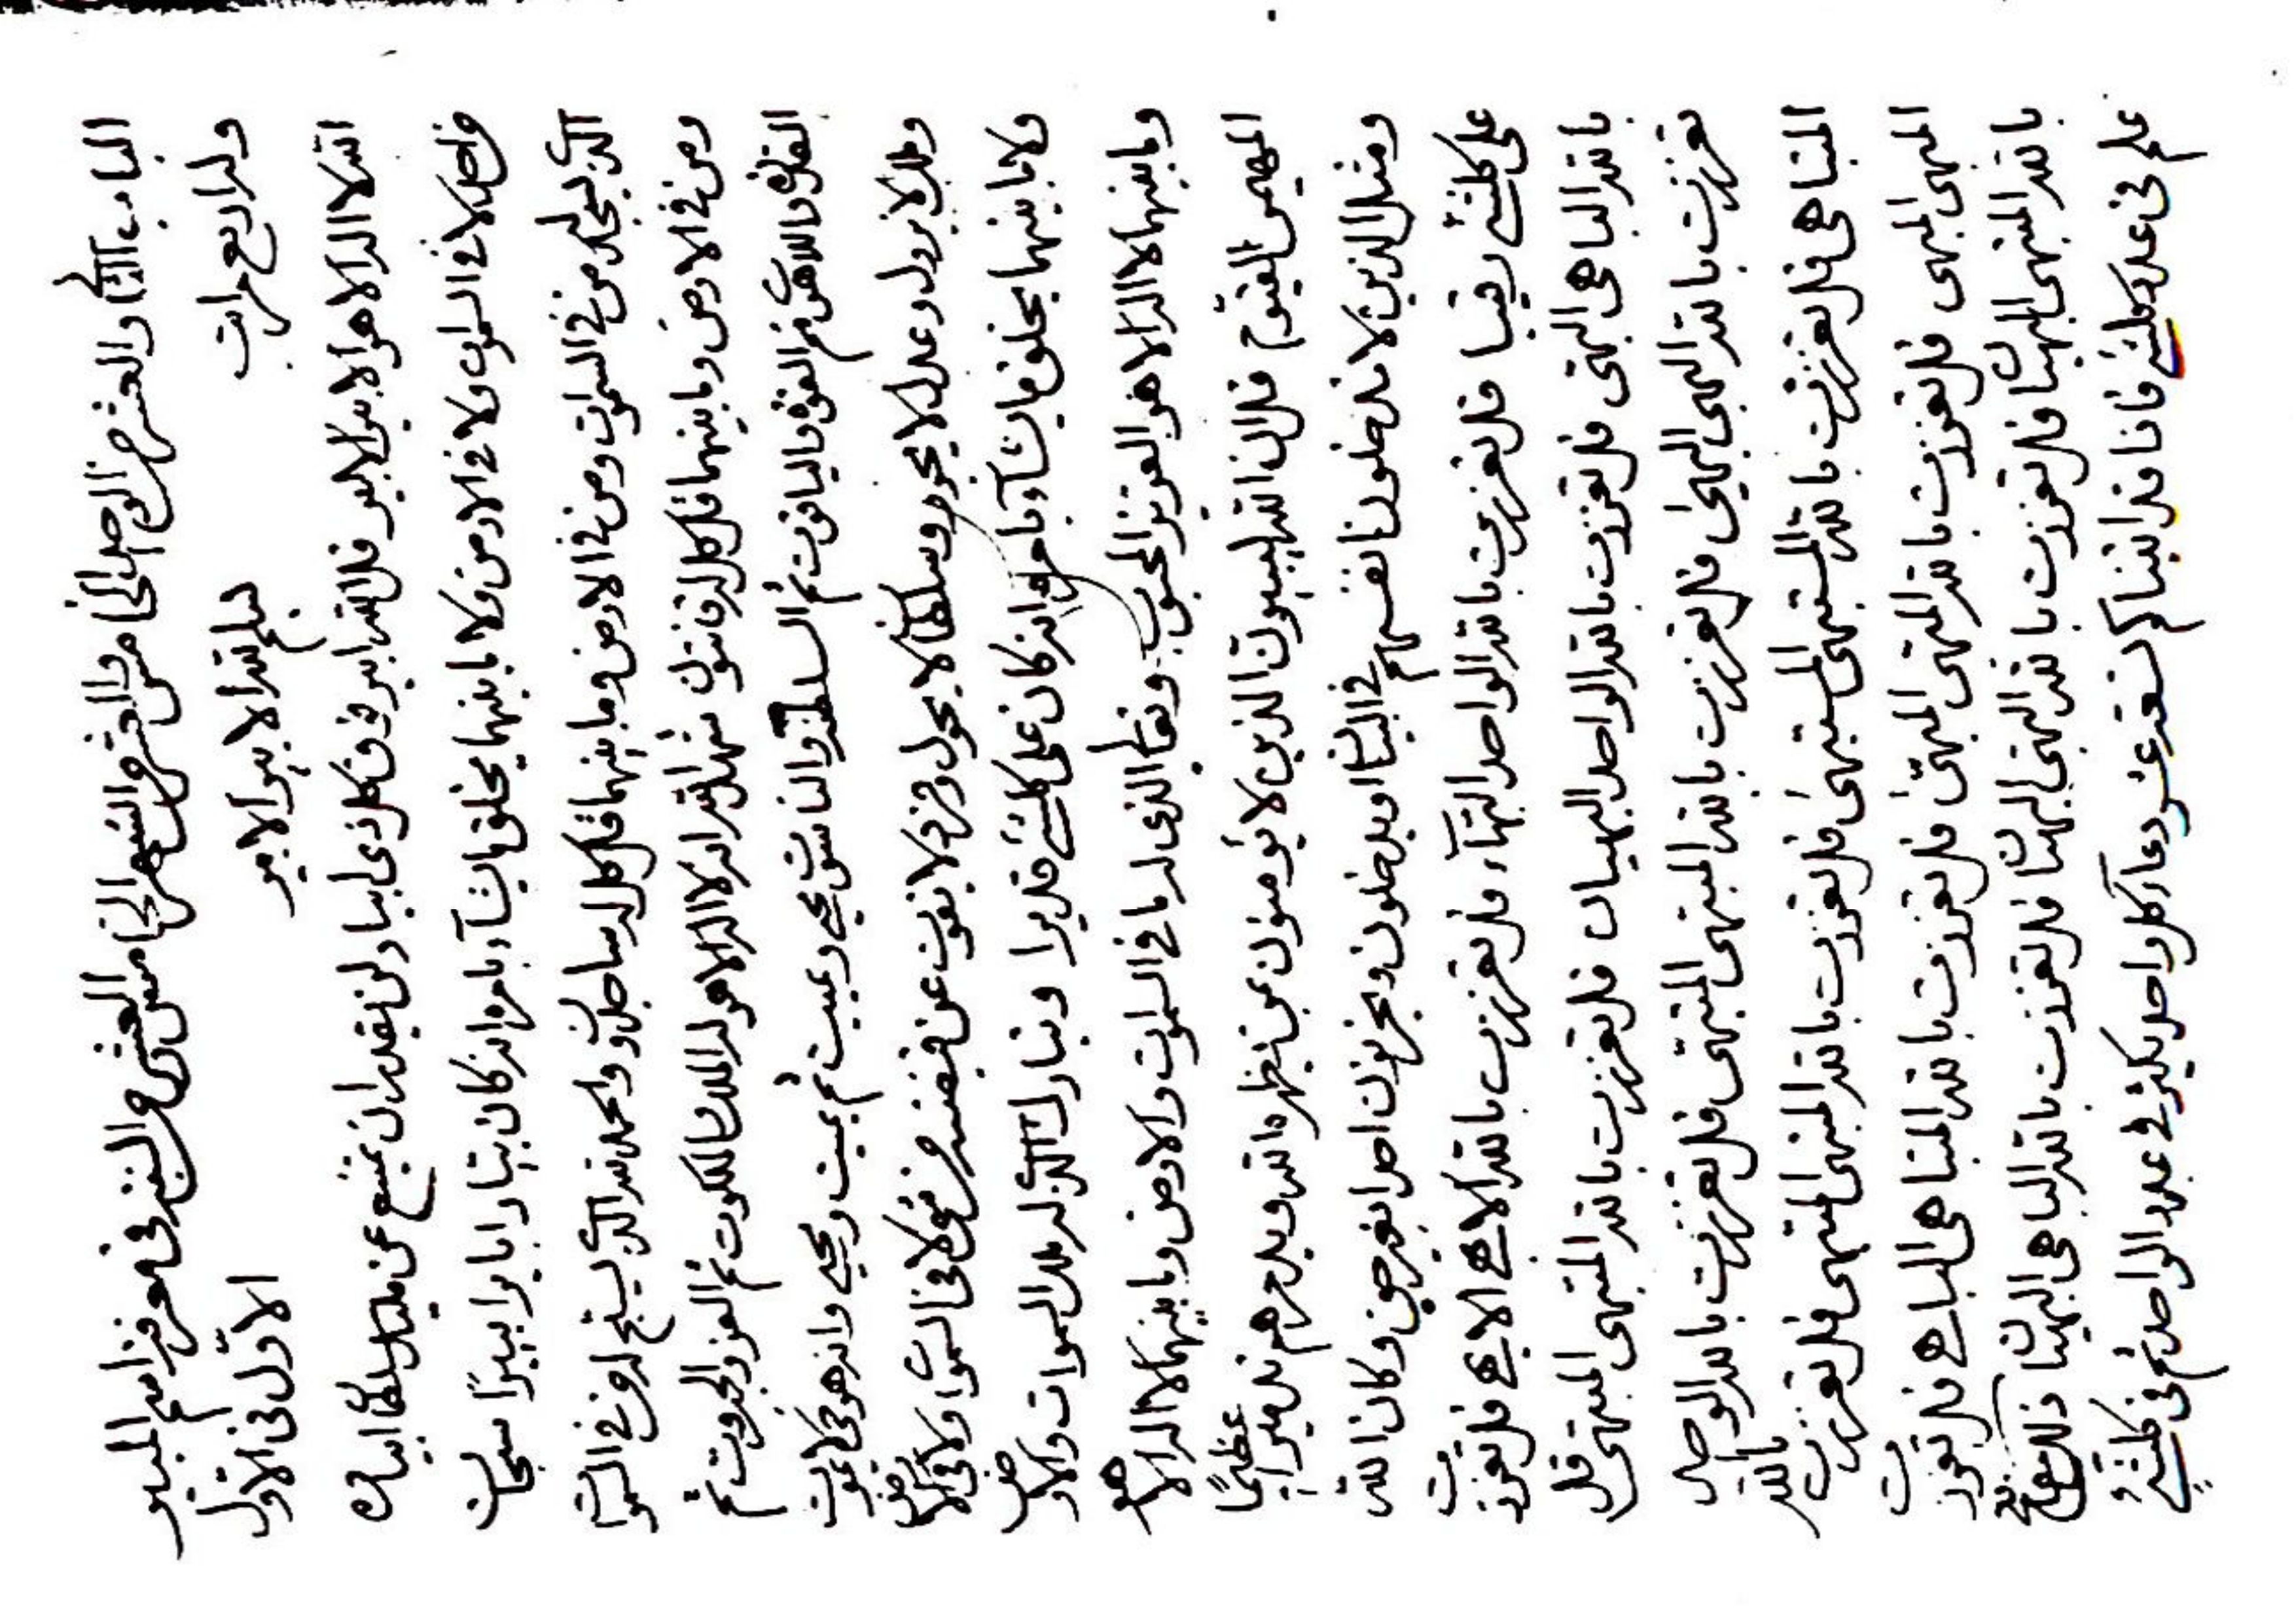 الباب والعشر من الواحد الخامس والعشر من الشهر الخامس العشر من السنة في معرفة اسم المبير
وله اربع مراتب بسم الله الابير الابير الاول في الاول
الله لا اله الا هو الابير الابير قل الله ابير فوق كل ذي ابيار لن يقدر ان يمتنع عن مليك سلطان ابياره
من احد لا في السموات ولا في الارض ولا ما بينهما يخلق ما يشآء بامره انه كان بيارا بايرا بييرًا سبحان
الذي يسجد له من في السموات ومن في الارض وما بينهما قل كل له ساجدون والحمد لله الذي يسبح له من في السموات
ومن في الارض وما بينهما قل كل له قانتون شهد الله انه لا اله الا هو له الملك والملكوت ثم العز والجبروت ثم
القدرة واللاهوت ثم القوة والياقوت ثم السلطنة والناسوت يحيي ويميت ثم يميت ويحيي وانه هو حي لا يموت
وملك لا يزول وعدل لا يجور وسلطان لا يحول وفرد لا يفوت عن قبضته من شيء لا في السموات ولا في الارض
ولا ما بينهما يخلق ما يشآء بامره انه كان على كلشيء قديرا وتبارك الذي له ملك السموات والارض
وما بينهما لا اله الا هو العزيز المحبوب وتعالى الذي له ما في السموات والارض وما بينهما لا اله الا هو
المهيمن القيوم قل ان الله ليبيرن الذين لا يؤمنون بمن يظهره الله ويدمرهم تدميرا عظيمًا
ومثل الذين لا يدخلون انفسهم في البيان او يدخلون ويحزنون احدا بغير حق وكان الله
على كلشيء رقيبا قل تعززت بالله الواحد البهآء قل تعززت بالله الابهى الابهى قل تعززت
بالله الباهي البهي قل تعززت بالله الواحد البهيان قل تعززت بالله المبتهي المبتهي قل
تعززت بالله البهي البهي قل تعززت بالله المبتهي المبتهي قل تعززت بالله
المتباهي قل تعززت بالله المستبهي المستبهي قل تعززت بالله قل تعززت بالله
قل تعززت بالله قل تعززت بالله المتباهي قل تعززت
بالله قل تعززت بالله قل تعززت بالله الباهي ذلك
علم في عدد كلشيء فانا قد اتيناكم تسعة عشر دعآء كل واحد عدد الواحد ثم في كلشيء